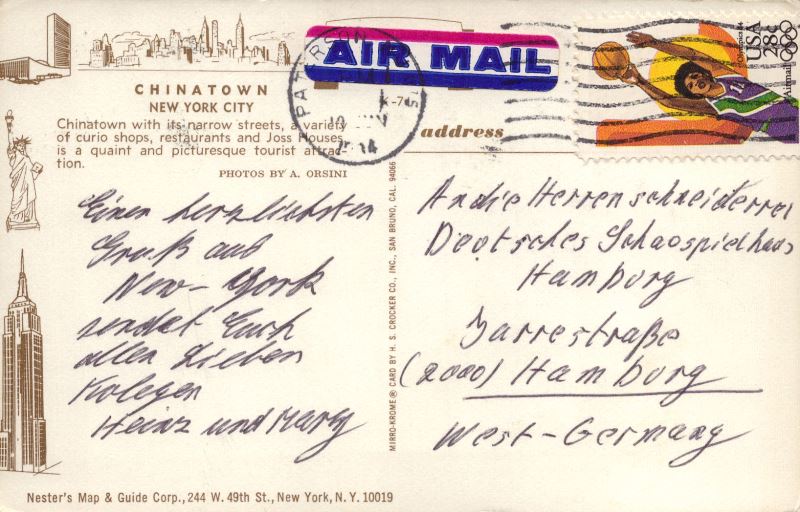 CHINATOWN
NEW YORK CITY
Chinatown with its narrow streets, a variety
of curio shops, restaurants and Joss Houses
is a quaint and picturesque tourist attrac-
tion.
PHOTOS BY A. ORSINI
Einen herzlichsten
Gruß aus
New-York
sendet Euch
allen lieben
Kolegen
Heinz und
Nester's Map & Guide Corp., 244 W. 49th St., New York, N. Y. 10019
MIRRO-KROME® CARD BY H. S. CROCKER CO., INC., SAN BRUNO, CAL. 94066
AIR MAIL
PATERSON
address
USA
28c
Airmail
Olympics 84
11
An die Herrenschneiderrei
Deutsches Schauspielhaus
Hamburg
Jarrestraße
(2000) Hamburg
West-Germany